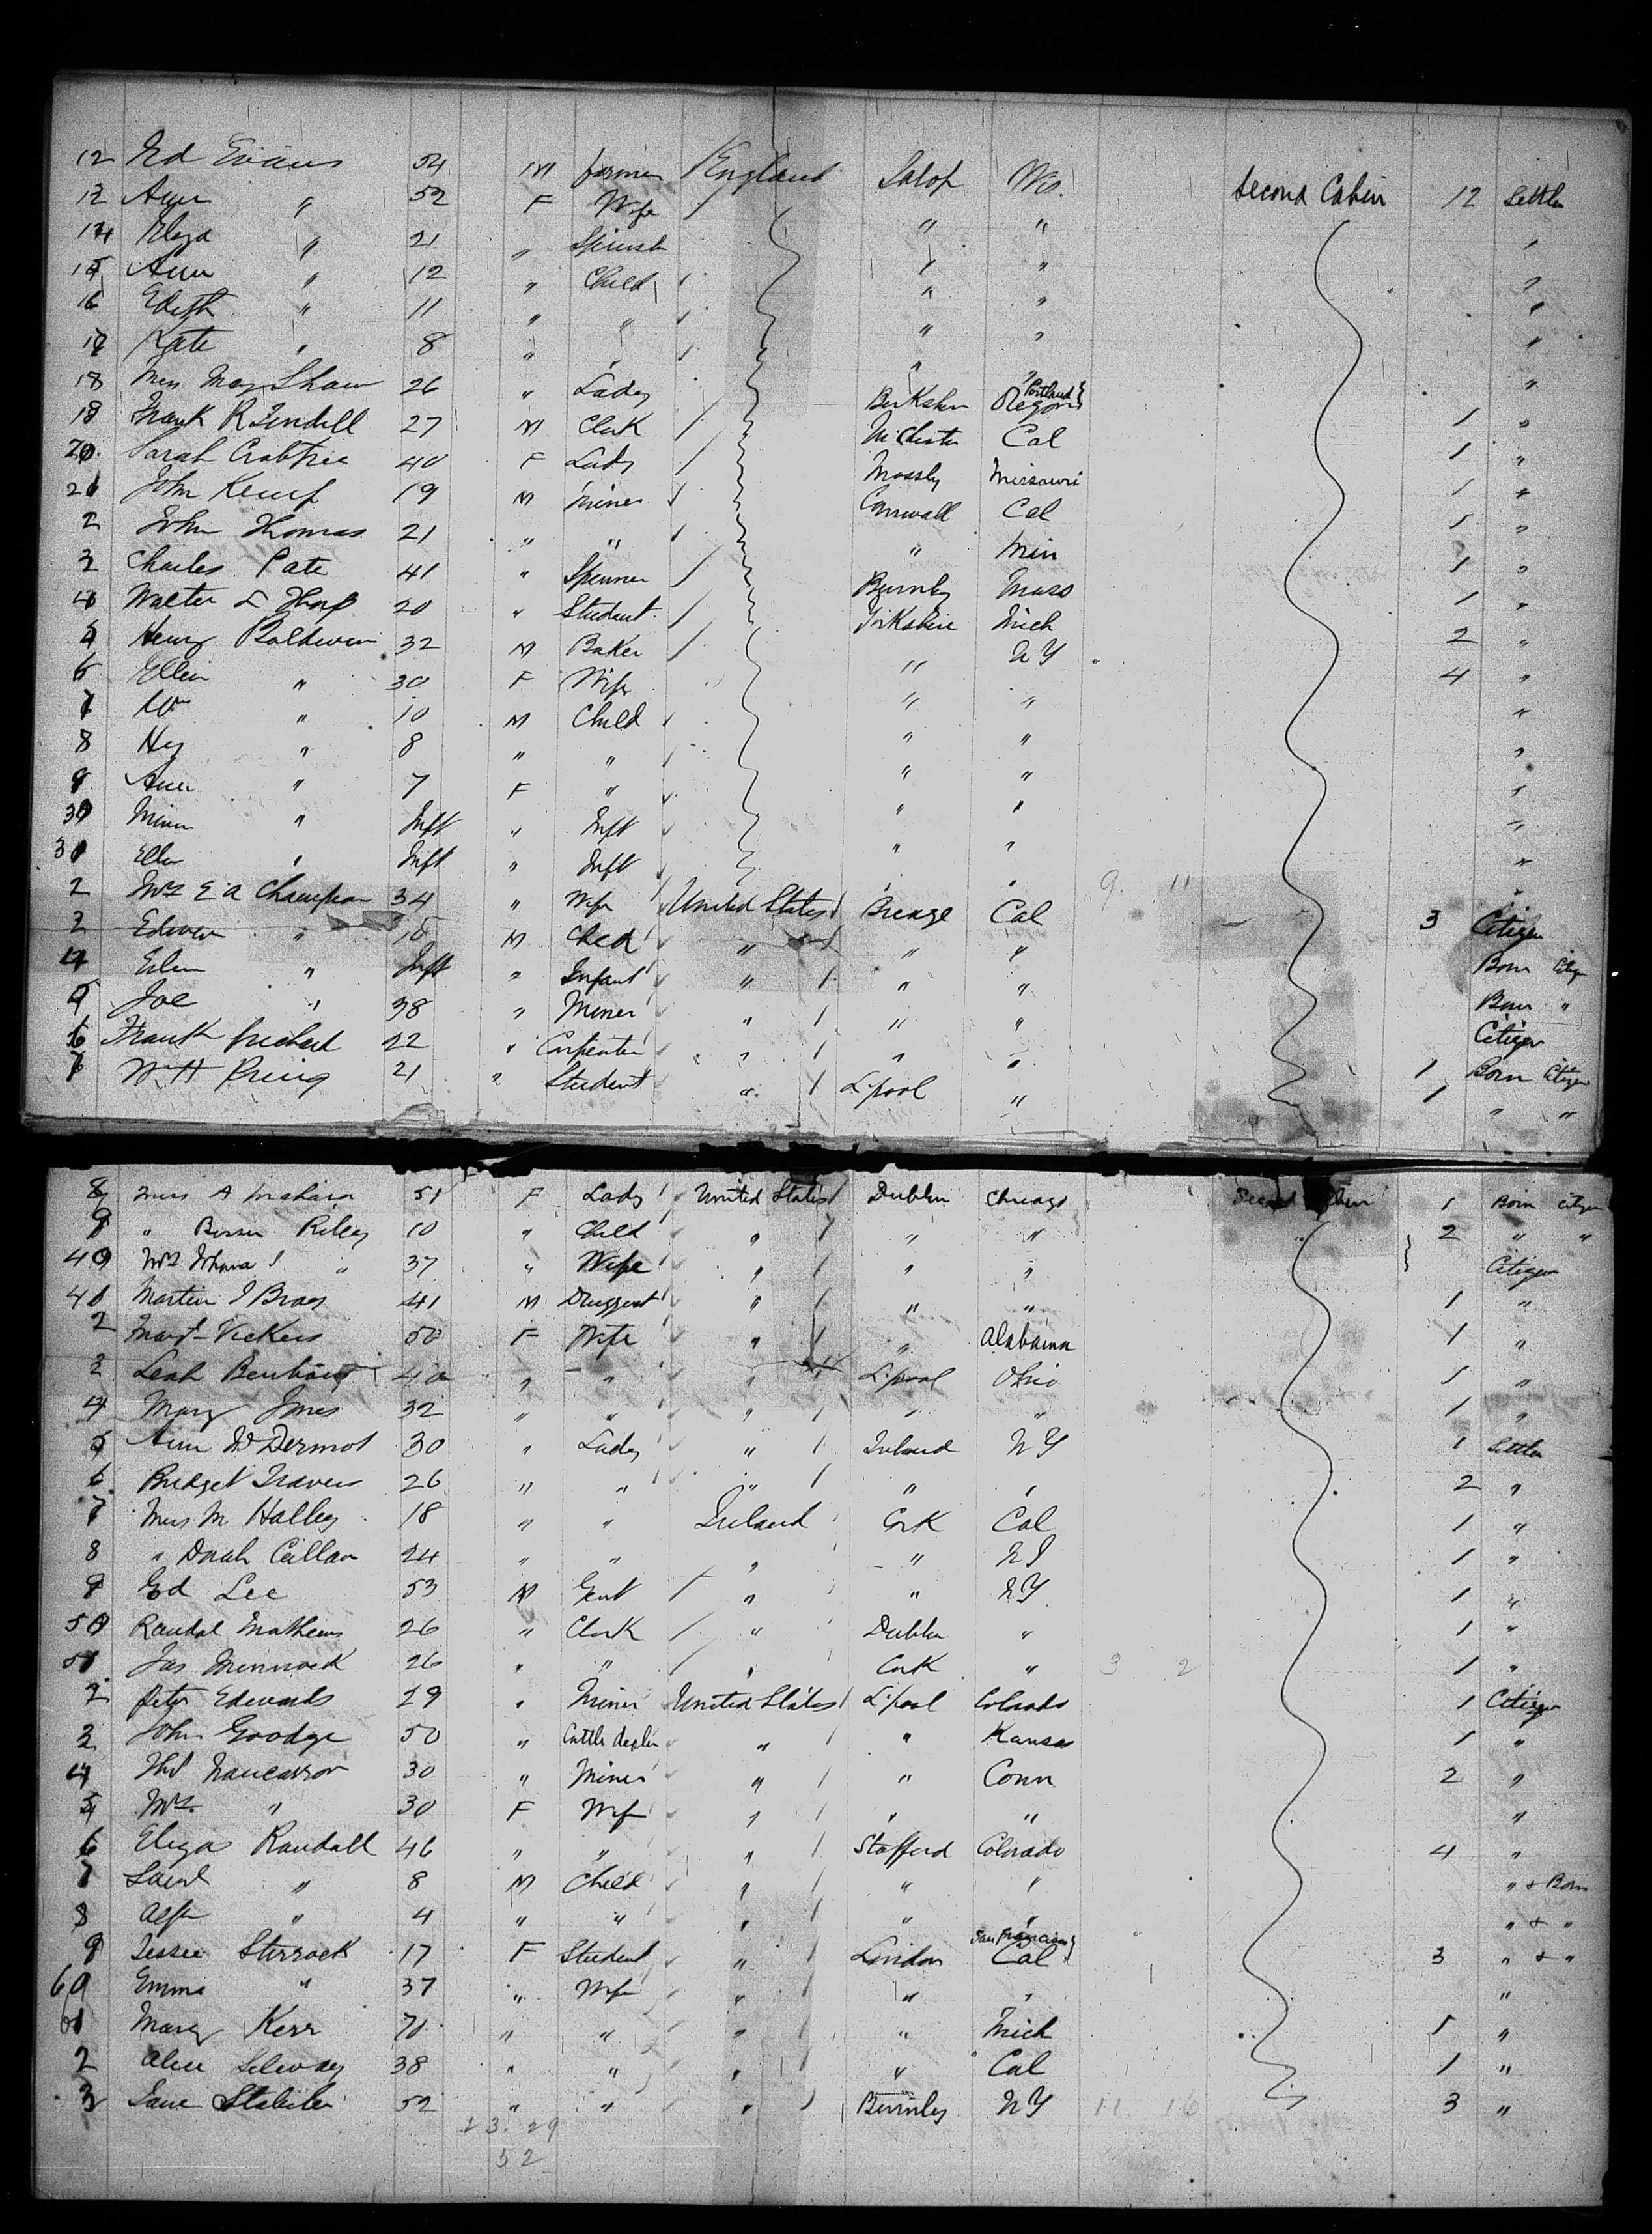 12 Ed Evans 54 M farmer England Salop Wis. Second Cabin 12 Settler
12 Ann " 52 F Wife " "
14 Eliza " 21 " Spinster " "
15 Ann " 12 " Child " "
16 Edith " 11 " " " "
Kate " 8 " " " "
18 Miss May Shaw 26 " Lady Berkshire Portland Oregon "
18 Frank R Tindill 27 M Clerk Cal 1 "
20 Sarah Crabtree 40 F Lady Mossly Missouri 1 "
21 John Kemp 19 M Miner Cornwall Cal 1 "
2 John Thomas 21 " " " Min 1 "
3 Charles Pate 41 " Spinner Burnley Mass 1 "
4 Walter L 20 " Student Yorkshire Mich 1 "
5 Henry Baldwin 32 M Baker " N Y 2 "
6 Ellen " 30 F Wife " " 4 "
7 Wm " 10 M Child " " "
8 Hy " 8 " " " " "
9 Ann " 7 F " " " "
30 Minn " Inft " Inft " " "
31 Ellen " Inft " Inft " " "
2 Mrs E A Champion 34 " Wife United States Breage Cal 9. 11 3 Citizen
" M Child " " " Born Citizen
4 " Inft " Infant " " " Born "
5 Joe " 38 " Miner " " " Citizen
6 Frank 22 " Carpenter " " " 1 Born Citizen
7 Wm H Pring 21 " Student " L'pool " 1 " "
8 Miss A 51 F Lady United States Dublin Chicago Second Cabin 1 Born Citizen
9 " Riley 10 " Child " " " 2 " "
40 Mrs " 37 " Wife " " " Citizen
41 Martin J 41 M Druggist " " " 1 "
2 Margt Vickers 50 F Wife " " Alabama 1 "
3 Leah 40 " " " L'pool Ohio 1 "
4 Mary Jones 32 " " " " " 1 "
5 Ann McDermot 30 " Lady " Ireland N Y 1 Settler
6 Bridget Travers 26 " " " " " 2 "
7 Miss M Halley 18 " " Ireland Cork Cal 1 "
8 " Callan 24 " " " " 1 "
9 Ed Lee 53 M Gent " " N Y 1 "
50 Randal Mathews 26 " Clerk " Dublin " 1 "
51 Jas 26 " " " Cork " 3 2 1 "
2 Peter Edwards 29 " Miner United States L'pool Colorado 1 Citizen
3 John Goodge 50 " Cattle dealer " " Kansas 1 "
4 Nancarrow 30 " Miner " " Conn 2 "
5 Mrs. " 30 F Wife " " " "
6 Eliza Randall 46 " " " Stafford Colorado 4 "
7 " 8 M Child " " " " & Born
8 " 4 " " " " " " & "
9 Jessie Sterrock 17 F Student " London San Francisco Cal 3 " & "
60 Emma " 37 " Wife " " " "
61 Mary Kerr 70 " " " " Mich 1 "
2 Alice Selway 38 " " " " Cal 1 "
3 Jane 52 " " " Burnley N Y 11. 16 3 "
23. 29
52